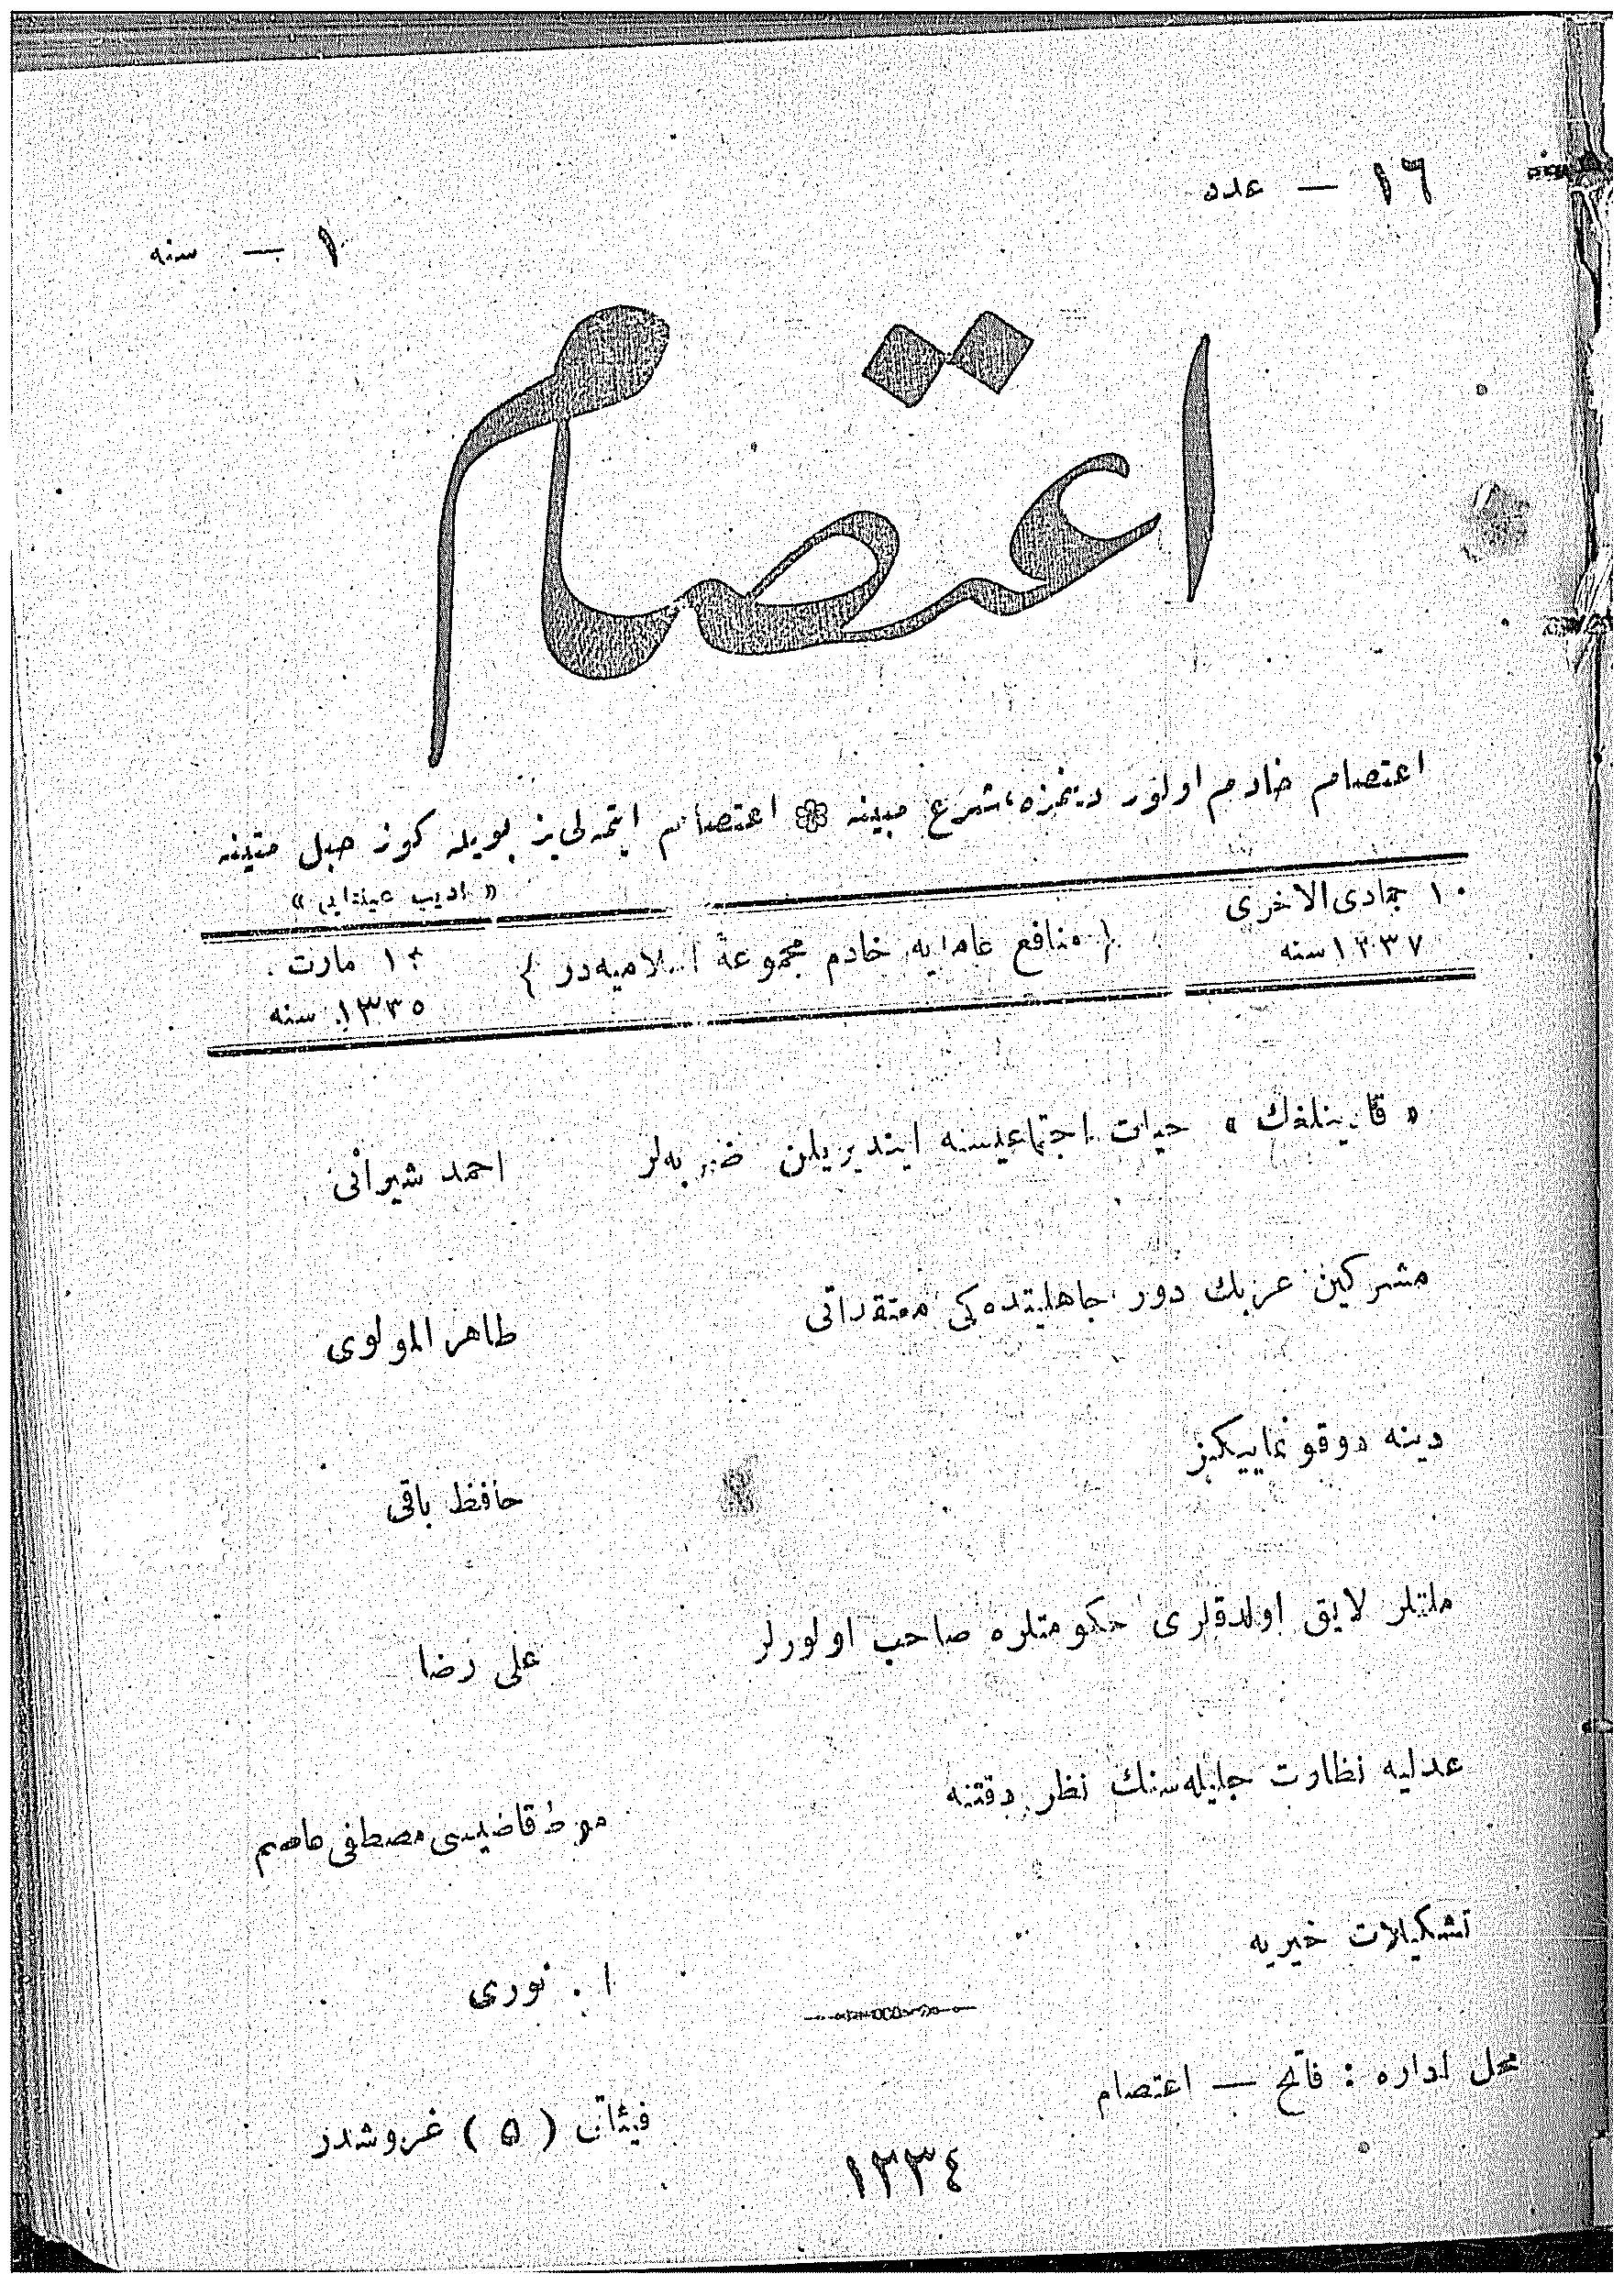 ١٦ — عدد
١ — سنه
اعتصام
اعتصام خادم اولور دينمزه، شرع مبينه ❀ اعتصام ايتمه‌لى‌يز بويله كون حبل متينه
« اديب عينتابى »
١٠ جمادى الاخرى
١٣٣٧ سنه
{ منافع عامه‌يه خادم مجموعهٔ اسلاميه‌در }
مارت
١٣٣٥ سنه
حيات اجتماعيسنه اينديريلن ضربه‌لر
احمد شيرانى
مشركين عربك دور جاهليتده‌كى معتقداتى
طاهر المولوى
دينه دوقونمايیكز
حافظ باقى
ملتلر لايق اولدقلرى حكومتلره صاحب اولورلر
على رضا
عدليه نظارت جليله‌سنك نظر دقتنه
قاضيسى مصطفى عاصم
تشكيلات خيريه
ا . نورى
محل اداره : فاتح — اعتصام
فيئاتى ( ٥ ) غروشدر
١٣٣٤